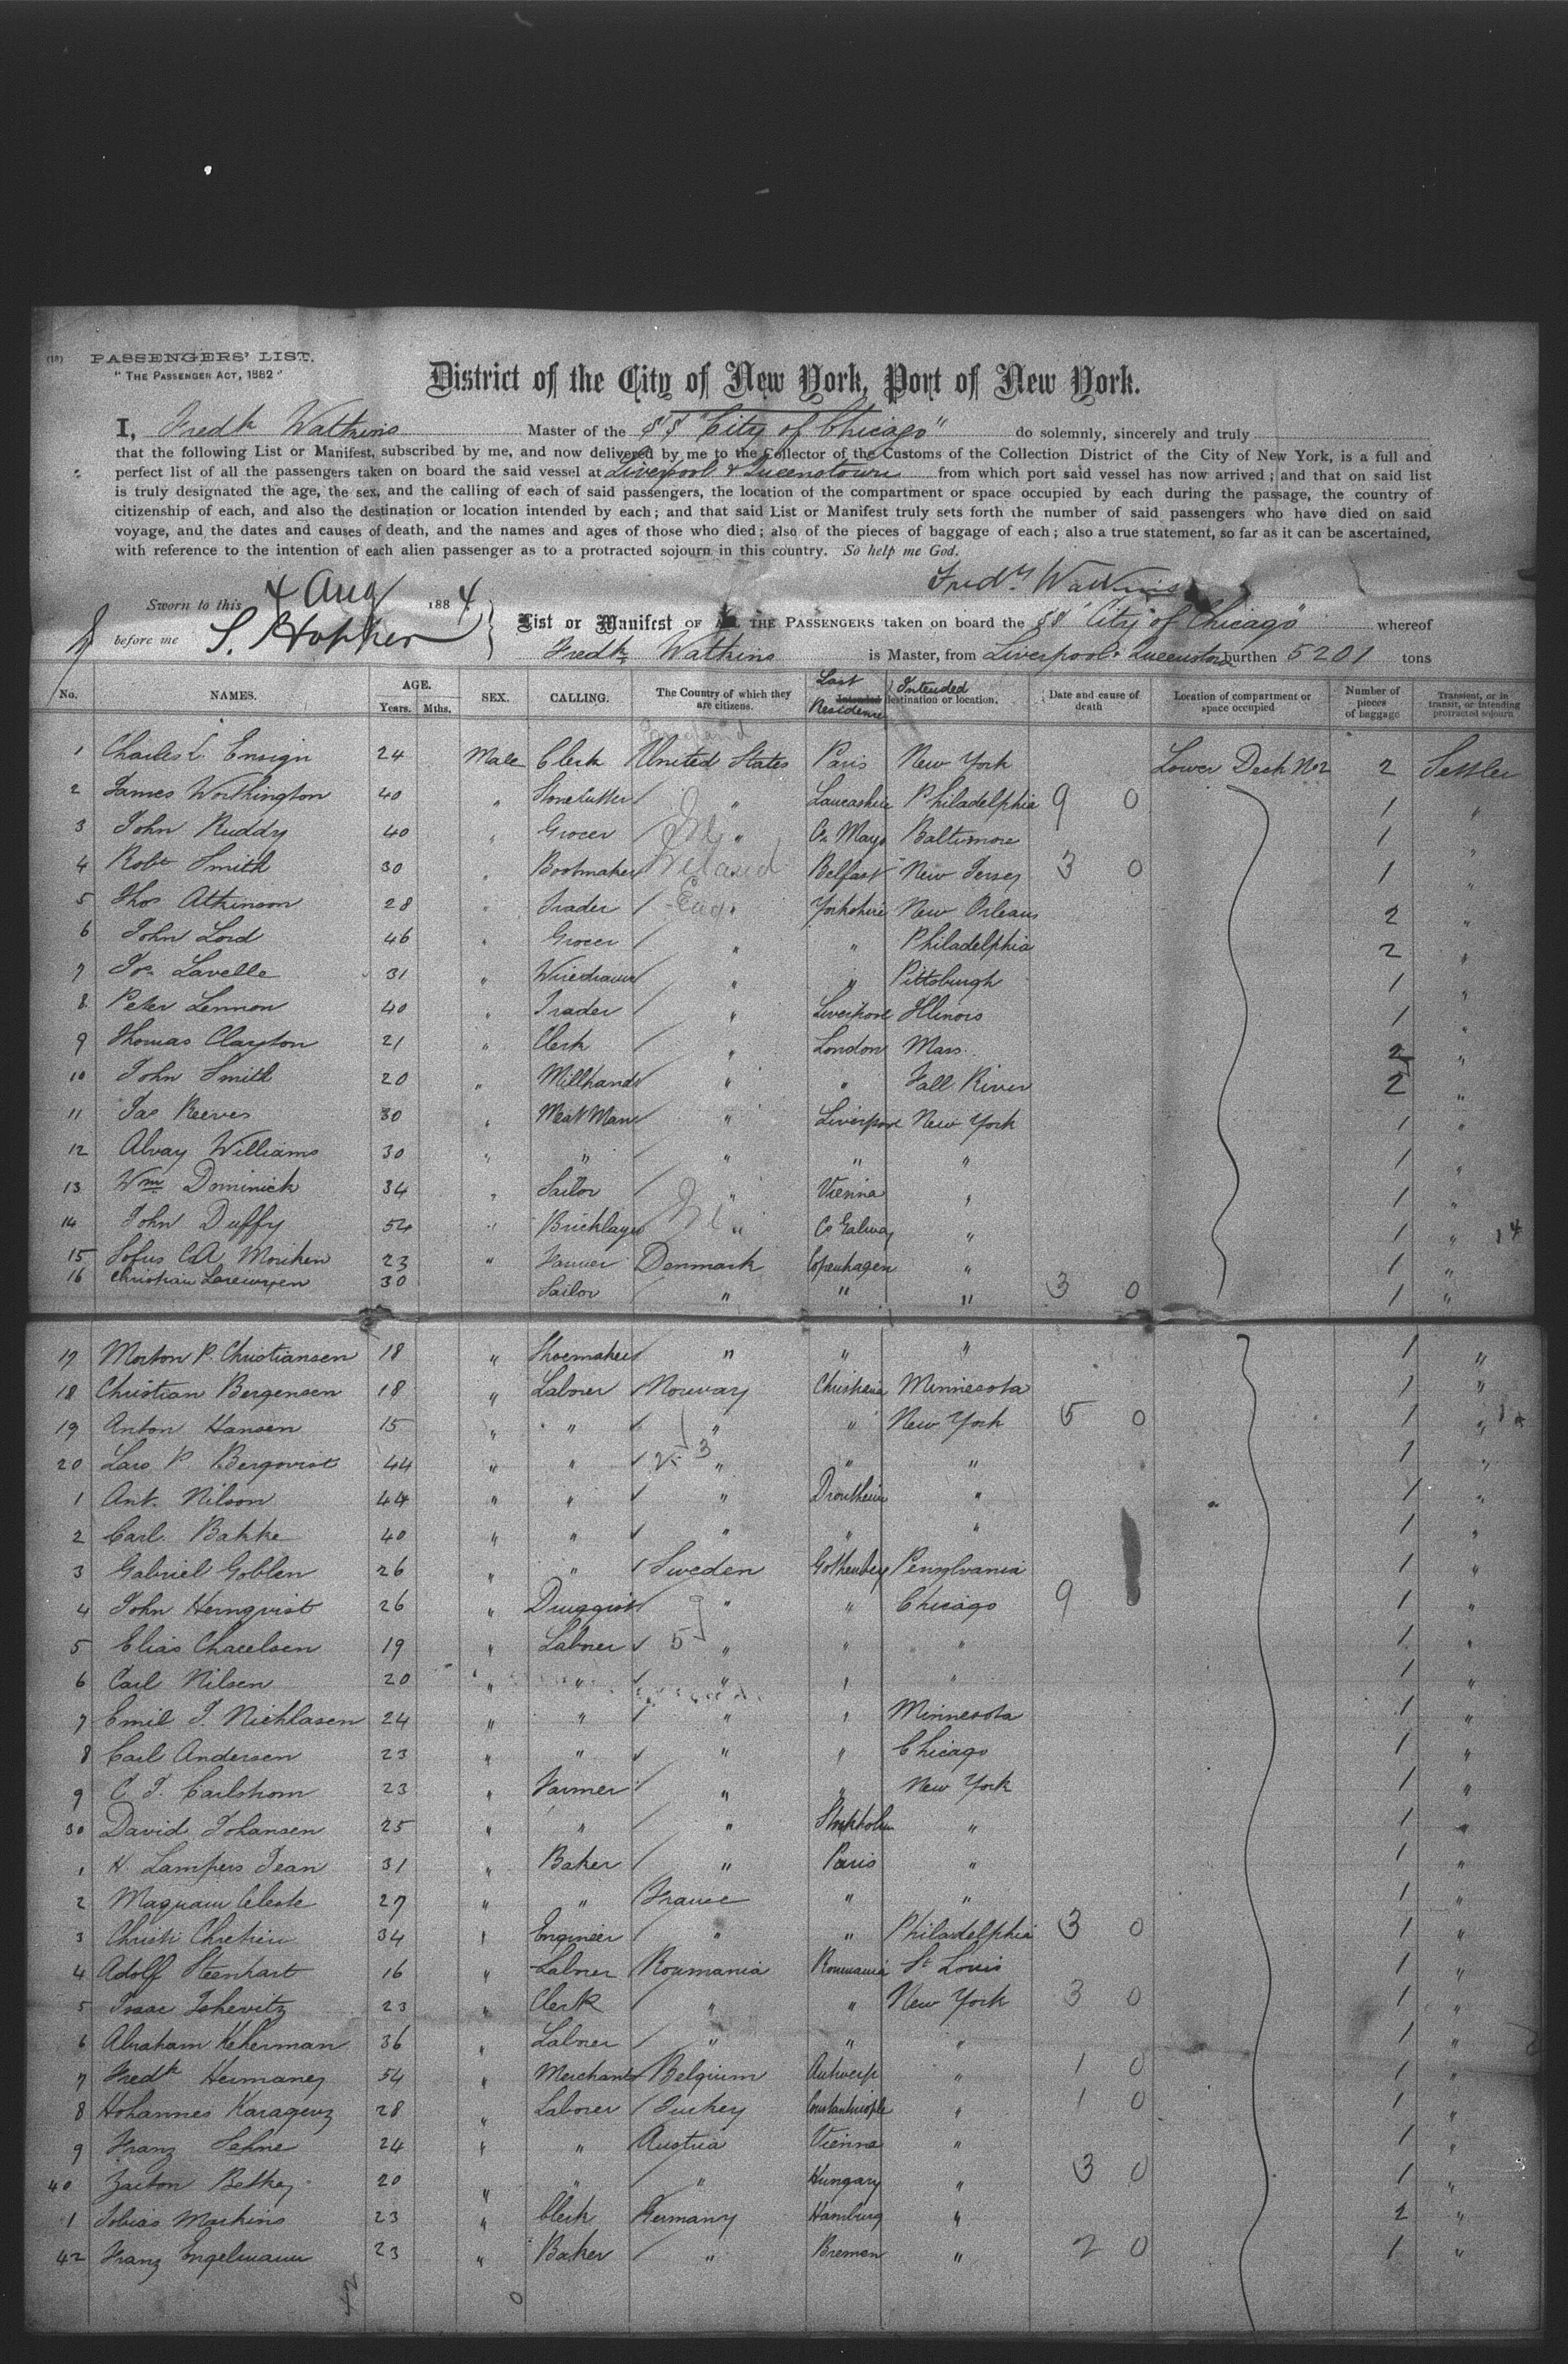 (18) PASSENGERS' LIST.
"THE PASSENGER ACT, 1882"
District of the City of New York, Port of New York.
I, Fredk Watkins Master of the SS "City of Chicago" do solemnly, sincerely and truly
that the following List or Manifest, subscribed by me, and now delivered by me to the Collector of the Customs of the Collection District of the City of New York, is a full and
perfect list of all the passengers taken on board the said vessel at Liverpool & Queenstown from which port said vessel has now arrived; and that on said list
is truly designated the age, the sex, and the calling of each of said passengers, the location of the compartment or space occupied by each during the passage, the country of
citizenship of each, and also the destination or location intended by each; and that said List or Manifest truly sets forth the number of said passengers who have died on said
voyage, and the dates and causes of death, and the names and ages of those who died; also of the pieces of baggage of each; also a true statement, so far as it can be ascertained,
with reference to the intention of each alien passenger as to a protracted sojourn in this country. So help me God.
Fredk Watkins
Sworn to this 4 Aug 1884
before me S. Hopper
List or Manifest OF ALL THE PASSENGERS taken on board the SS "City of Chicago" whereof
Fredk Watkins is Master, from Liverpool & Queenstown burthen 5201 tons
No. NAMES. AGE. Years. Mths. SEX. CALLING. The Country of which they are citizens. Last Residence Intended destination or location. Date and cause of death Location of compartment or space occupied Number of pieces of baggage Transient, or in transit, or intending protracted sojourn
1 Charles L. Ensign 24 Male Clerk United States Paris New York Lower Deck No 2 2 Settler
2 James Worthington 40 " Stonecutter " Lancashire Philadelphia 9 0 1 "
3 John Ruddy 40 " Grocer " Co Mayo Baltimore 1 "
4 Robt Smith 30 " Bootmaker Ireland Belfast New Jersey 3 0 1 "
5 Thos Atkinson 28 " Trader Eng " Yorkshire New Orleans 2 "
6 John Lord 46 " Grocer " " Philadelphia 2 "
7 Jos. Lavelle 31 " Wiredrawer " " Pittsburgh 1 "
8 Peter Lennon 40 " Trader " Liverpool Illinois 1 "
9 Thomas Clayton 21 " Clerk " London Mass. 2 "
10 John Smith 20 " Millhand " " Fall River 2 "
11 Jas Reeves 30 " Meat Man " Liverpool New York 1 "
12 Alvay Williams 30 " " " " " 1 "
13 Wm Dominick 34 " Sailor " Vienna " 1 "
14 John Duffy 54 " Bricklayer " Co Galway " 1 "
15 Sofus C.A. 23 " Farmer Denmark Copenhagen " 1 "
16 Christian 30 Sailor " " " 3 0 1 "
17 Morton P. Christiansen 18 " Shoemaker " " " 1 "
18 Christian Bergensen 18 " Laborer Norway Christiania Minnesota 1 "
19 Anton Hansen 15 " " " " New York 5 0 1 "
20 Lars P. Bergqvist 44 " " " " " 1 "
1 Ant. Nilson 44 " " " Drontheim " 1 "
2 Carl Bakke 40 " " " " " 1 "
3 Gabriel Goblen 26 " " Sweden Gothenburg Pensylvania 1 "
4 John Hernqvist 26 " Druggist " " Chicago 9 1 "
5 Elias 19 " Laborer " " " 1 "
6 Carl Nilsen 20 " " " " " 1 "
7 Emil J. Nichlasen 24 " " " " Minnesota 1 "
8 Carl Andersen 23 " " " " Chicago 1 "
9 C. J. Carlstrom 23 " Farmer " " New York 1 "
30 David Johansen 25 " " " Stockholm " 1 "
1 H. Lampers Jean 31 " Baker " Paris " 1 "
2 Maquam Celeste 27 " " France " " 1 "
3 Christi Chretien 34 " Engineer " " Philadelphia 3 0 1 "
4 Adolf Steenhart 16 " Laborer Roumania Roumania St Louis 1 "
5 Isaac 23 " Clerk " " New York 3 0 1 "
6 Abraham Kekerman 36 " Laborer " " " 1 "
7 Fredk Hermaney 54 " Merchant Belgium Antwerp " 1 0 1 "
8 Hohannes Karageuz 28 " Laborer Turkey Constantinople " 1 0 1 "
9 Franz Sehne 24 " " Austria Vienna " 1 "
40 Zaiton Betkey 20 " " " Hungary " 3 0 1 "
1 Tobias Markins 23 " Clerk Germany Hamburg " 2 "
42 Franz Engelmann 23 " Baker " Bremen " 2 0 1 "
42 0